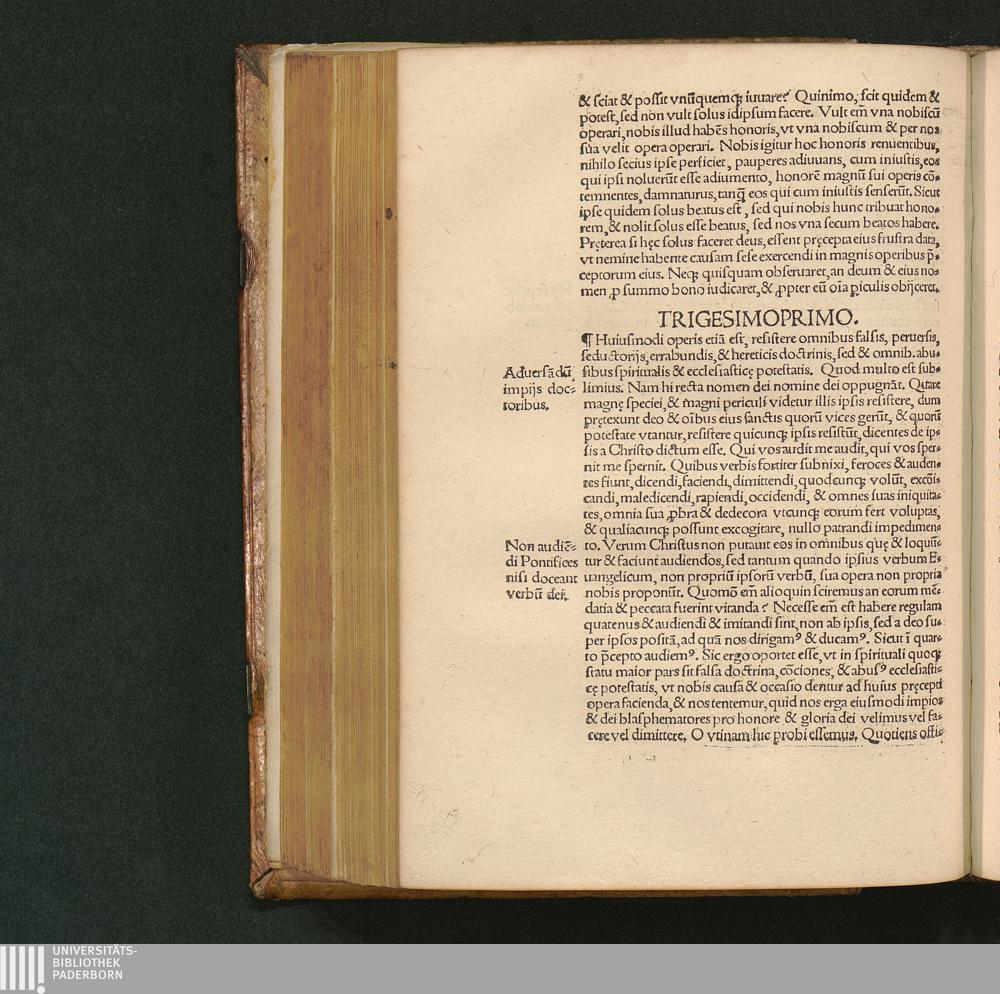 & sciat & possit vnūquemqꝫ iuuare? Quinimo, scit quidem &
potest, sed non vult solus idipsum facere. Vult em̄ vna nobiscū
operari, nobis illud habēs honoris, vt vna nobiscum & per nos
sua velit opera operari. Nobis igitur hoc honoris renuentibus,
nihilo secius ipse perficiet, pauperes adiuuans, cum iniustis, eos
qui ipsi noluerūt esse adiumento, honorē magnū sui operis cō-
temnentes, damnaturus, tanq̄ eos qui cum iniustis senserūt. Sicut
ipse quidem solus beatus est, sed qui nobis hunc tribuat hono-
rem, & nolit solus esse beatus, sed nos vna secum beatos habere.
Pręterea si hęc solus faceret deus, essent pręcepta eius frustra data,
vt nemine habente causam sese exercendi in magnis operibus p̄-
ceptorum eius. Neqꝫ quisquam obseruaret, an deum & eius no-
men ꝓ summo bono iudicaret, & ꝓpter eū oīa ꝑiculis obijceret.
TRIGESIMOPRIMO.
¶ Huiusmodi operis etiā est, resistere omnibus falsis, peruersis,
seductorijs, errabundis, & hereticis doctrinis, sed & omnib. abu-
Aduersādū
impijs doc-
toribus.
sibus spiritualis & ecclesiasticę potestatis. Quod multo est sub-
limius. Nam hi recta nomen dei nomine dei oppugnāt. Quare
magnę speciei, & magni periculi videtur illis ipsis resistere, dum
prętexunt deo & oībus eius sanctis quorū vices gerūt, & quorū
potestate vtantur, resistere quicunqꝫ ipsis resistūt, dicentes de ip-
sis a Christo dictum esse. Qui vos audit me audit, qui vos sper-
nit me spernit. Quibus verbis fortiter subnixi, feroces & auden-
tes fiunt, dicendi, faciendi, dimittendi, quodcunqꝫ volūt, excōi-
candi, maledicendi, rapiendi, occidendi, & omnes suas iniquita-
tes, omnia sua ꝓbra & dedecora vtcunqꝫ eorum fert voluptas,
& qualiacunqꝫ possunt excogitare, nullo patrandi impedimen-
Non audiē-
di Pontifices
nisi doceant
verbū dei.
to. Verum Christus non putauit eos in omnibus quę & loquū-
tur & faciunt audiendos, sed tantum quando ipsius verbum E-
uangelicum, non propriū ipsorū verbū, sua opera non propria
nobis proponūt. Quomō em̄ alioquin sciremus an eorum mē-
datia & peccata fuerint vitanda? Necesse em̄ est habere regulam
quatenus & audiendi & imitandi sint, non ab ipsis, sed a deo su-
per ipsos positā, ad quā nos dirigamꝰ & ducamꝰ. Sicut ī quar-
to p̄cepto audiemꝰ. Sic ergo oportet esse, vt in spirituali quoqꝫ
statu maior pars sit falsa doctrina, cōciones, & abusꝰ ecclesiasti-
cę potestatis, vt nobis causā & occasio dentur ad huius pręcepti
opera facienda, & nos tentemur, quid nos erga eiusmodi impios
& dei blasphematores pro honore & gloria dei velimus vel fa-
cere vel dimittere. O vtinam huc probi essemus. Quotiens offi-
UNIVERSITÄTS-
BIBLIOTHEK
PADERBORN